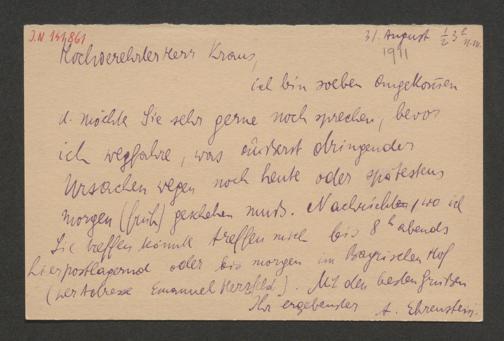 J.N. 141.861
31. August ½ 3h n.m.
1911
Hochverehrter Herr Kraus,
ich bin soeben angekommen
u. möchte Sie sehr gerne noch sprechen, bevor
ich wegfahre, was äußerst dringender
Ursachen wegen noch heute oder spätestens
morgen (früh) geschehen muß. Nachrichten, wo ich
Sie treffen könnte treffen mich bis 8h abends
hierpostlagernd oder bis morgen im Bayrischen Hof
(per Adresse Emanuel Herzfeld). Mit den besten Grüßen
Ihr ergebender A. Ehrenstein.